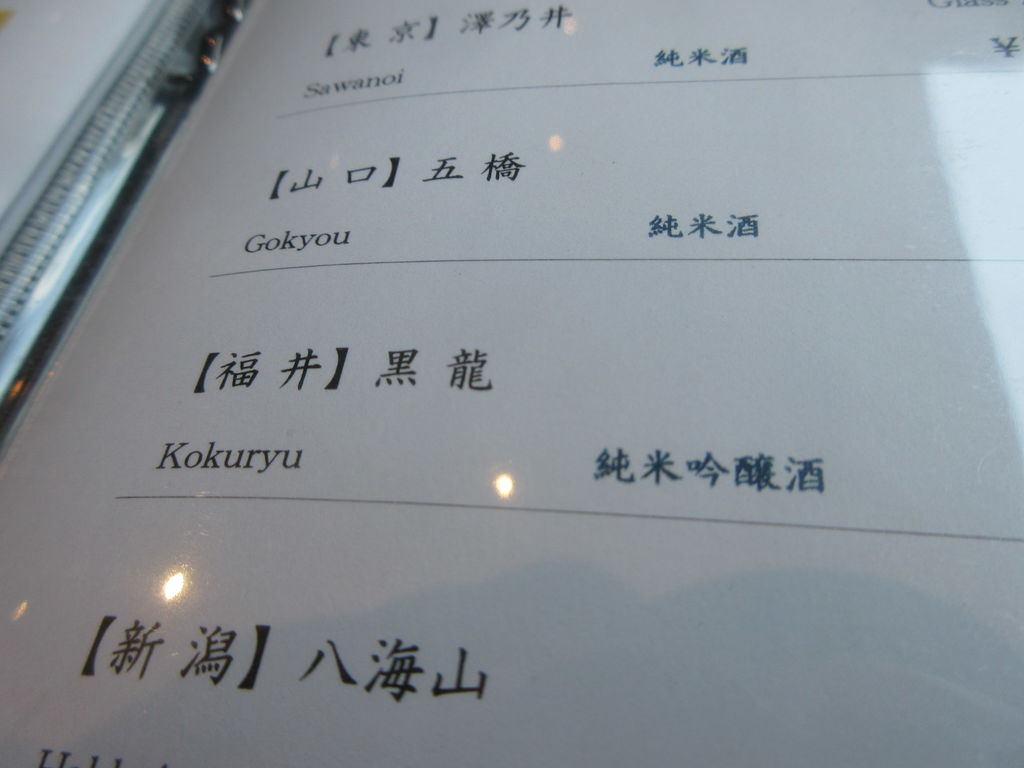 Glass
【東 京】 澤乃井
Sawanoi 純米酒
【山 口】 五 橋
Gokyou 純米酒
【福 井】 黒 龍
Kokuryu 純米吟醸酒
【新 潟】 八海山